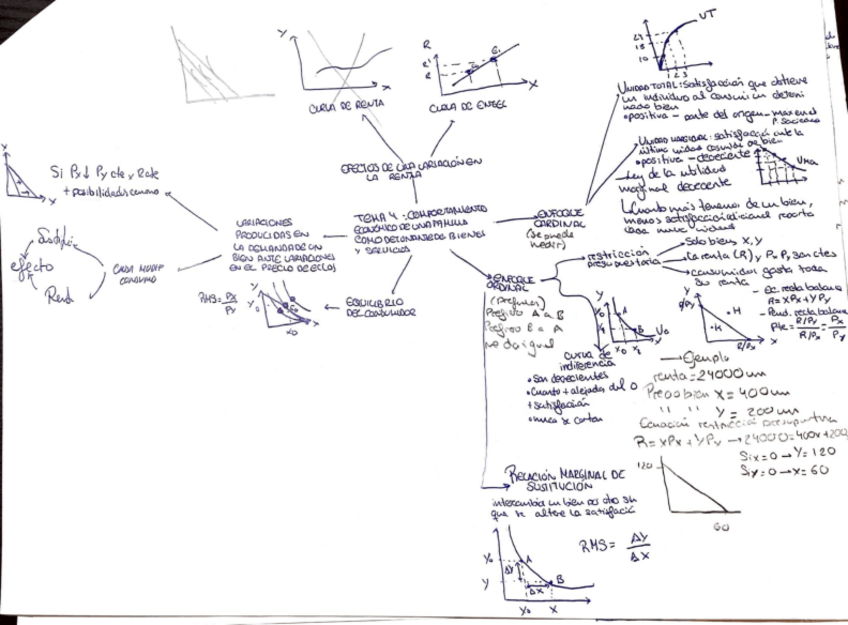 Y
X
CURVA DE RENTA
R
R'
R
E₁
X
CURVA DE ENGEL
UT
18
10
1 2 3
UNIDAD TOTAL: Satisfacción que obtiene
un individuo al consumir determi
nado bien
• positiva – parte del origen – max en el
P. Saciedad
UNIDAD MARGINAL: satisfacción ante la
última unidad de bien
• positiva – decreciente
UMa
Ley de la utilidad
marginal decreciente
Cuanto más tenemos de un bien,
menos satisfacción adicional reporta
cada nueva unidad
EFECTOS DE UNA VARIACIÓN EN
LA RENTA
Si Px↓ Py cte y R cte
+ posibilidades consumo
x
VARIACIONES
PRODUCIDAS EN
LA DEMANDA DE UN
BIEN ANTE VARIACIONES
EN EL PRECIO DE
TEMA 4: COMPORTAMIENTO
ECONÓMICO DE UNA FAMILIA
COMO DE BIENES
Y SERVICIOS
ENFOQUE
CARDINAL
(Se puede
medir)
efecto
Rent
CONSUMO
RMS = Px/Py
Y
Y₀
X₀
X
EQUILIBRIO
DEL CONSUMIDOR
ENFOQUE
ORDINAL
(Prefiere)
Prefiero A a B
Prefiero B a A
me da igual
restricción
presupuestaria
Solo bienes X, Y
La renta (R) y Px Py son ctes
consumidor gasta toda
su renta
– Ec. recta balance
R = XPx + YPy
– Pend. recta balance
Pte = (R/Py)/(R/Px) = Px/Py
Y
R/Py
• H
• K
R/Px
X
Y
Y₀
Y₁
A
B
U₀
X₀ X₁
X
Curva de
indiferencia
• Son decrecientes
• Cuanto + alejada del 0
+ satisfacción
• nunca se cortan
→ Ejemplo
renta = 24000 um
Precio bien X = 400 um
" " Y = 200 um
Ecuación restricción presupuestaria
R = XPx + YPy → 24000 = 400x + 200
Si x=0 → Y=120
Si y=0 → x=60
120
60
RELACIÓN MARGINAL DE
SUSTITUCIÓN
intercambia un bien por otro sin
que se altere la satisfacció
RMS = ΔY/ΔX
Y₀
Y
A
ΔY
ΔX
B
X₀
X